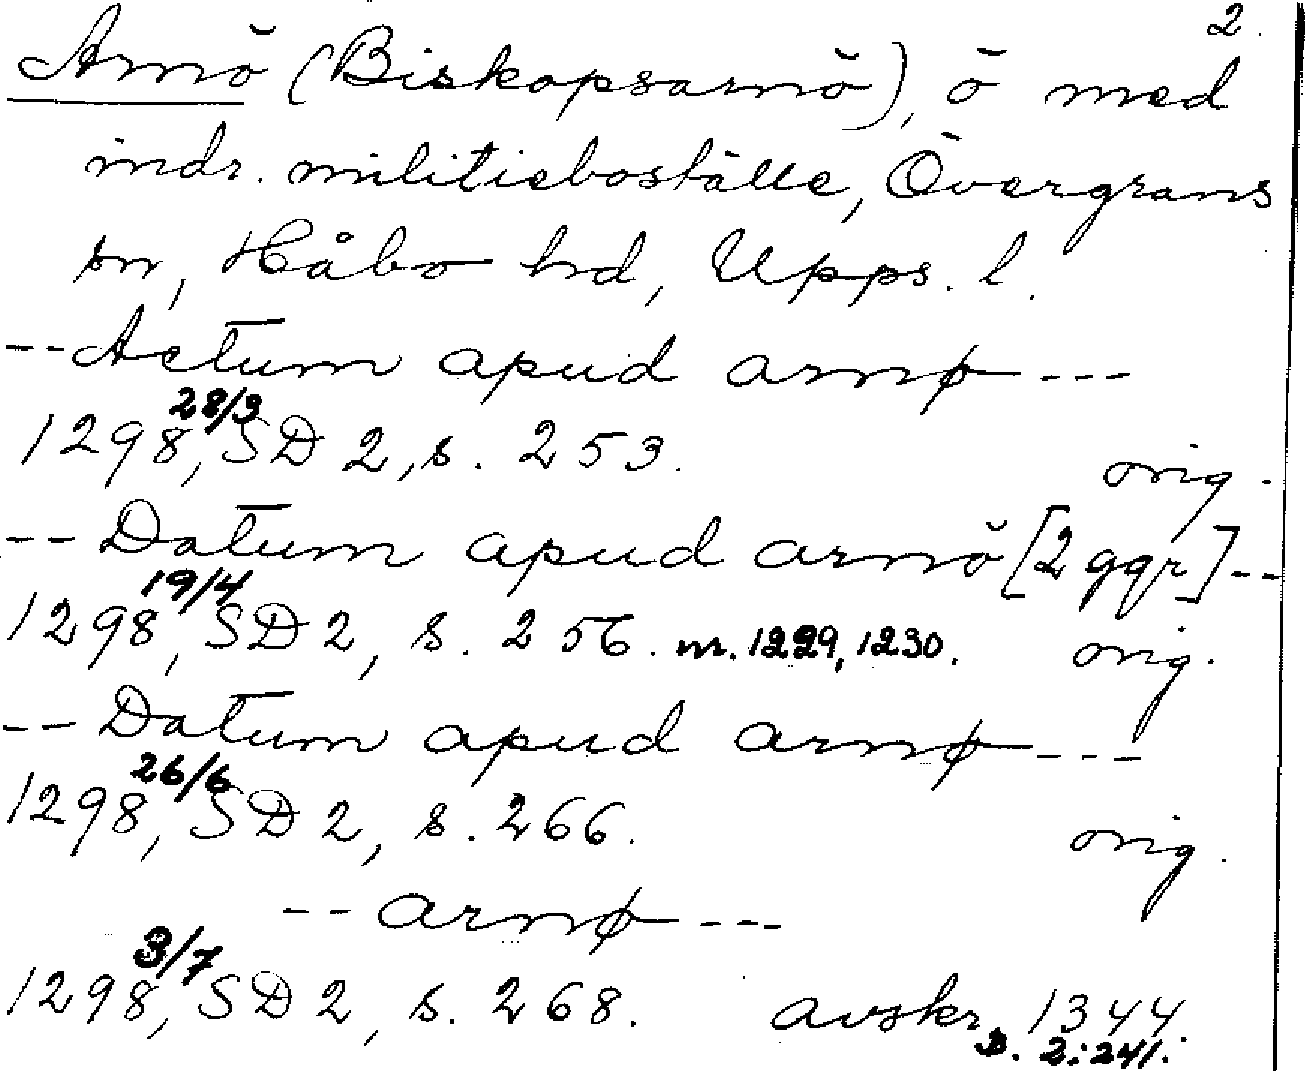 2.
Arnö (Biskopsarnö), ö med
indr. militieboställe, Övergrans
sn, Håbo hd, Upps. l.
-- Actum apud arnø ---
1298 28/3, SD 2, s. 253. orig.
-- Datum apud arnö [2 ggr] --
1298 19/4, SD 2, s. 256. nr. 1229, 1230. orig.
-- Datum apud arnø ---
1298 26/6, SD 2, s. 266. orig.
-- arnø ---
1298 3/7, SD 2, s. 268. avskr. 1344.
B. 2:241.